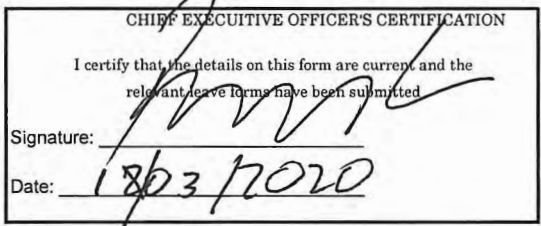 CHIEF EXECUITIVE OFFICER'S CERTIFICATION
I certify that the details on this form are current and the
relevant leave forms have been submitted
Signature:
Date: 18/03/2020